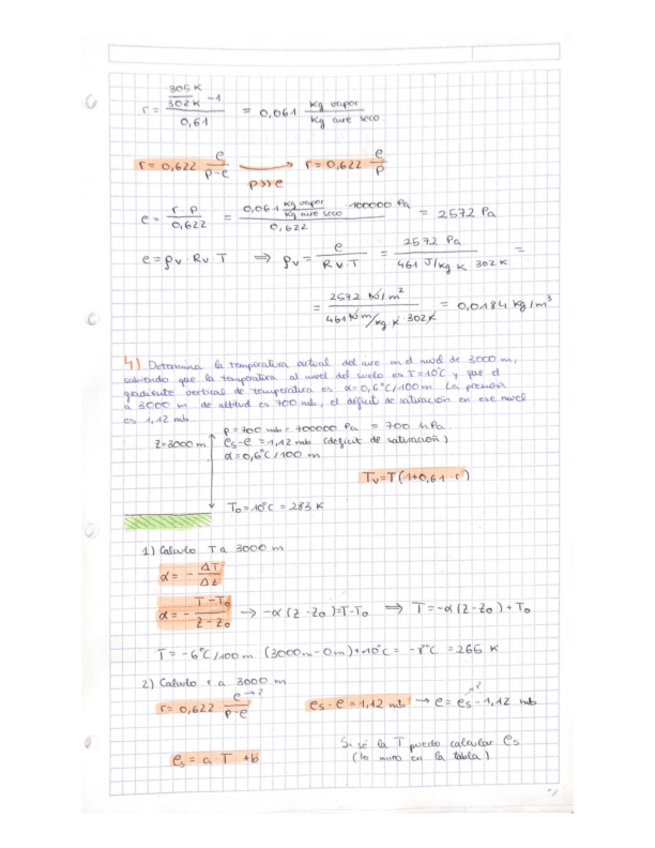 r = (305 K / 302 K − 1) / 0,61 = 0,061 Kg vapor / Kg aire seco
r = 0,622 e / p-e → r = 0,622 e / p
p>>e
e = r · p / 0,622 = 0,061 Kg vapor / Kg aire seco · 100000 Pa / 0,622 = 2572 Pa
e = ρv · Rv · T ⇒ ρv = e / Rv · T = 2572 Pa / 461 J/kg K · 302 K =
= 2572 N/m² / 461 N m/kg K · 302 K = 0,0184 kg/m³
4) Determina la temperatura virtual del aire en el nivel de 3000 m,
sabiendo que la temperatura al nivel del suelo es T=10°C y que el
gradiente vertical de temperatura es α=0,6°C/100m. La presión
a 3000 m de altitud es 700 mb, el déficit de saturación en ese nivel
es 1,12 mb
p=700 mb = 700000 Pa = 700 hPa
Z=3000 m
es-e = 1,12 mb (déficit de saturación)
α=0,6°C/100 m
Tv=T(1+0,61·r)
To=10°C = 283 K
1) Calculo T a 3000 m
α = − ΔT / Δz
α = − T-To / z-zo → -α(z-zo)=T-To ⇒ T=-α(z-zo)+To
T = -6°C/100 m (3000m-0m)+10°C = -8°C = 265 K
2) Calculo r a 3000 m
r = 0,622 e→? / p-e
es-e = 1,12 mb → e = es - 1,12 mb
?
es = a · T + b
Si sé la T puedo calcular es
(lo miro en la tabla)